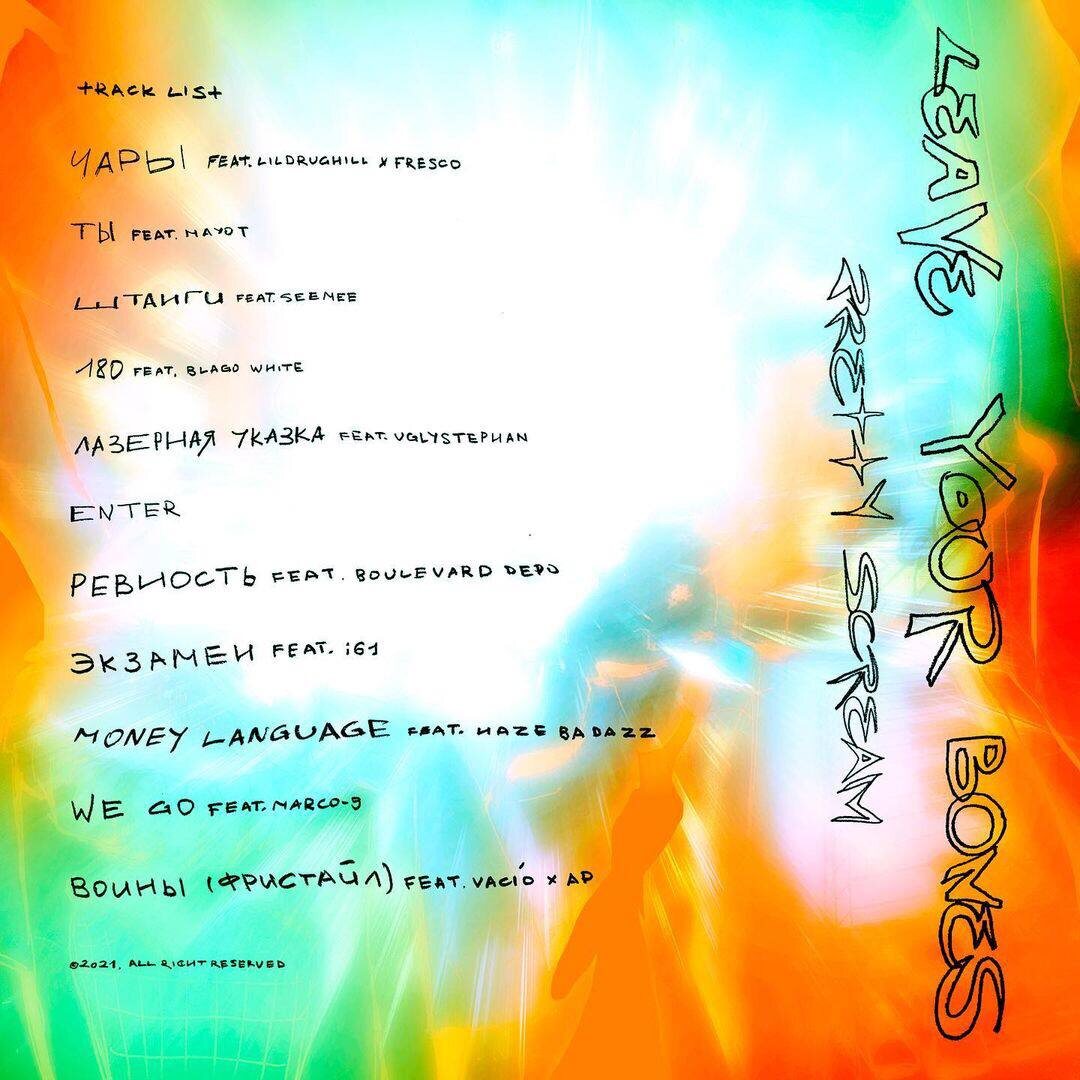 TRACK LIST
ЧАРЫ FEAT. LILDRUGHILL X FRESCO
ТЫ FEAT. MAYOT
ШТАНГИ FEAT. SEEMEE
180 FEAT. BLAGO WHITE
ЛАЗЕРНАЯ УКАЗКА FEAT. UGLYSTEPHAN
ENTER
РЕВНОСТЬ FEAT. BOULEVARD DEPO
ЭКЗАМЕН FEAT. i61
MONEY LANGUAGE FEAT. HAZE BADAZZ
WE GO FEAT. NARCO-9
ВОИНЫ (ФРИСТАЙЛ) FEAT. VACÍO X AP
©2021, ALL RIGHT RESERVED
LEAVE YOUR BONES
PRETTY SCREAM